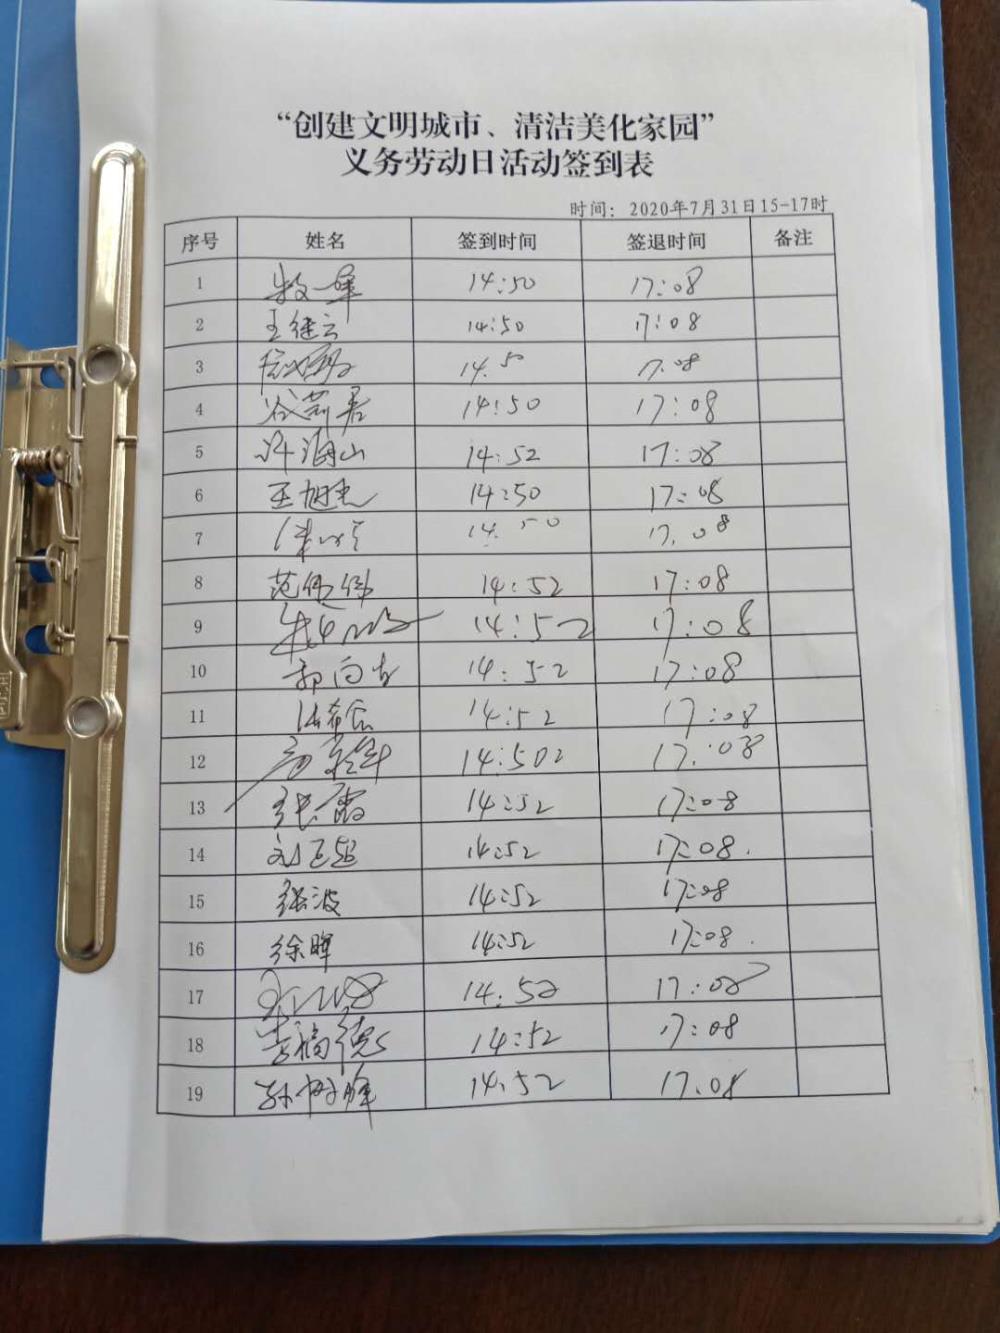 “创建文明城市、清洁美化家园”
义务劳动日活动签到表
时间：2020年7月31日15-17时
序号 姓名 签到时间 签退时间 备注
1 14:50 17:08
2 王继云 14:50 17:08
3 14.50 17.08
4 14:50 17:08
5 许海山 14:52 17:08
6 王旭光 14:50 17:08
7 14.50 17.08
8 范伟伟 14:52 17:08
9 14:52 17:08
10 郭向吉 14:52 17:08
11 14:52 17:08
12 14:502 17:08
13 张霞 14:52 17:08
14 14:52 17:08.
15 张波 14:52 17:08
16 徐晖 14:52 17:08.
17 14:52 17:08
18 李福德 14:52 17:08
19 孙树峰 14.52 17.08